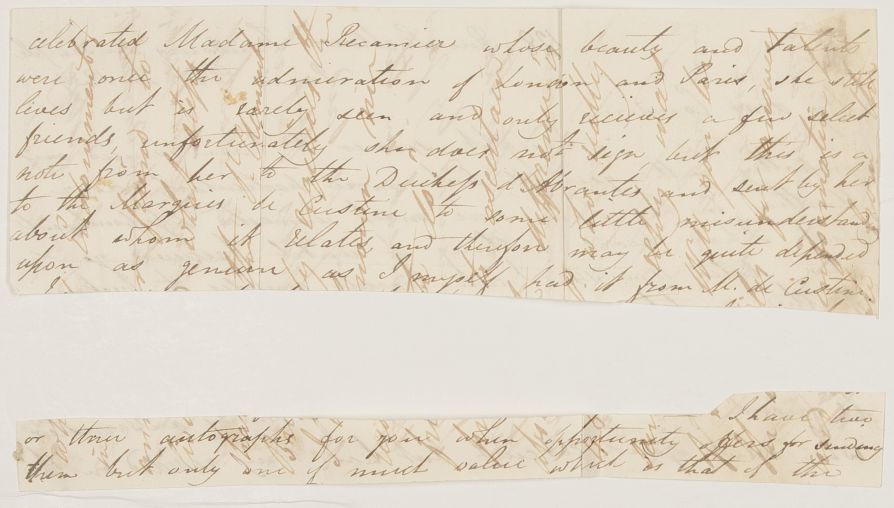 celebrated Madame Recamier whose beauty and talents
were once the admiration of London and Paris, she still
lives but is rarely seen and only recieves a few select
friends, unfortunately she does not sign, but this is a
note from her to the Duchess d'Abrantes and sent by her
to the Marquis de Custine to some little misunderstand
about whom it relates, and therefore may be quite depended
upon as genuine as I myself had it from M. de Custine.
I have two
or three autographs for you when opportunity offers for sending
them but only one of much value which is that of the